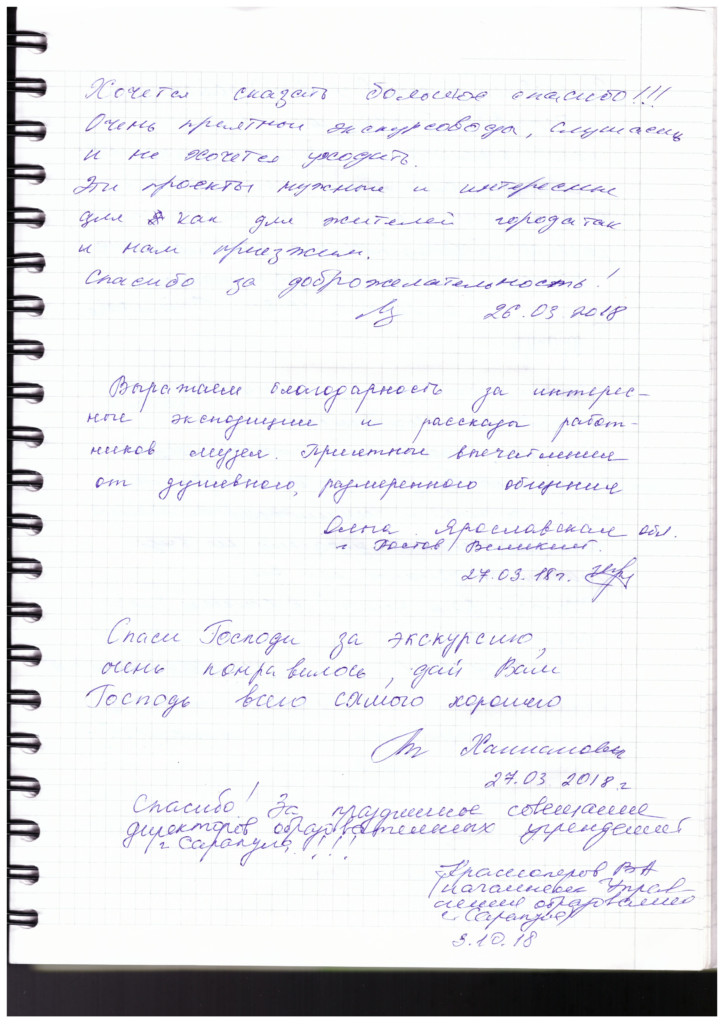 Хочется сказать большое спасибо!!!
Очень приятной экскурсовода, слушаешь
и не хочется уходить.
Эти проекты нужные и интересные
для как для жителей города так
и нам приезжим.
Спасибо за доброжелательность!
26.03.2018
Выражаем благодарность за интерес-
ные экспозиции и рассказы работ-
ников музея. Приятные впечатления
от душевного, размеренного общения
Ярославская обл.
г. Ростов Великий.
27.03.18г.
Спаси Господи за экскурсию,
очень понравилось, дай Вам
Господь всего самого хорошего
27.03 2018 г
Спасибо! За праздничное совещание
директоров образовательных учреждений
г Сарапула!!!
Красноперов ВА
(начальник Управ-
ления образования
г. Сарапула)
3.10.18